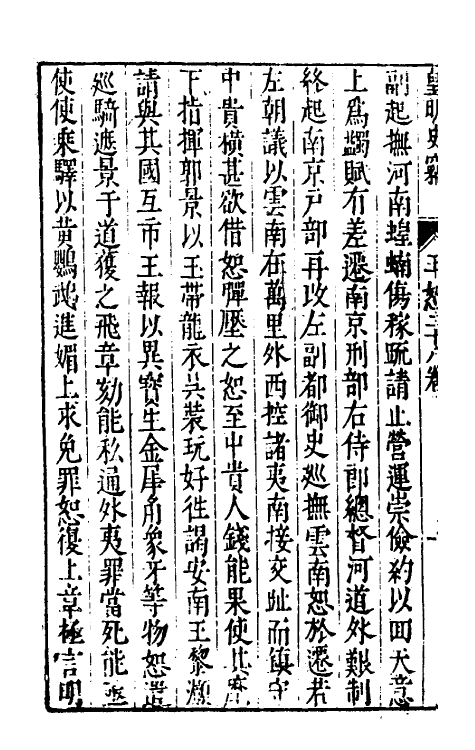 皇明史竊　王恕　三十八卷
副起撫河南蝗蝻傷稼疏請止營運崇儉約以回天意
上爲蠲賦有差遷南京刑部右侍郎總督河道外艱制
終起南京戸部再改左副都御史巡撫雲南恕於遷若
左朝議以雲南在萬里外西控諸夷南接交趾而鎮守
中貴橫甚欲借恕彈壓之恕至中貴人錢能果使其麾
下指揮郭景以玉帶龍衣兵裝玩好徃謁安南王黎灝
請與其國互市王報以異寳生金犀角象牙等物恕遣
巡騎遮景于道獲之飛章劾能私通外夷罪當死能亟
使使乘驛以黄鸚鵡進媚上求免罪恕復上章極言明